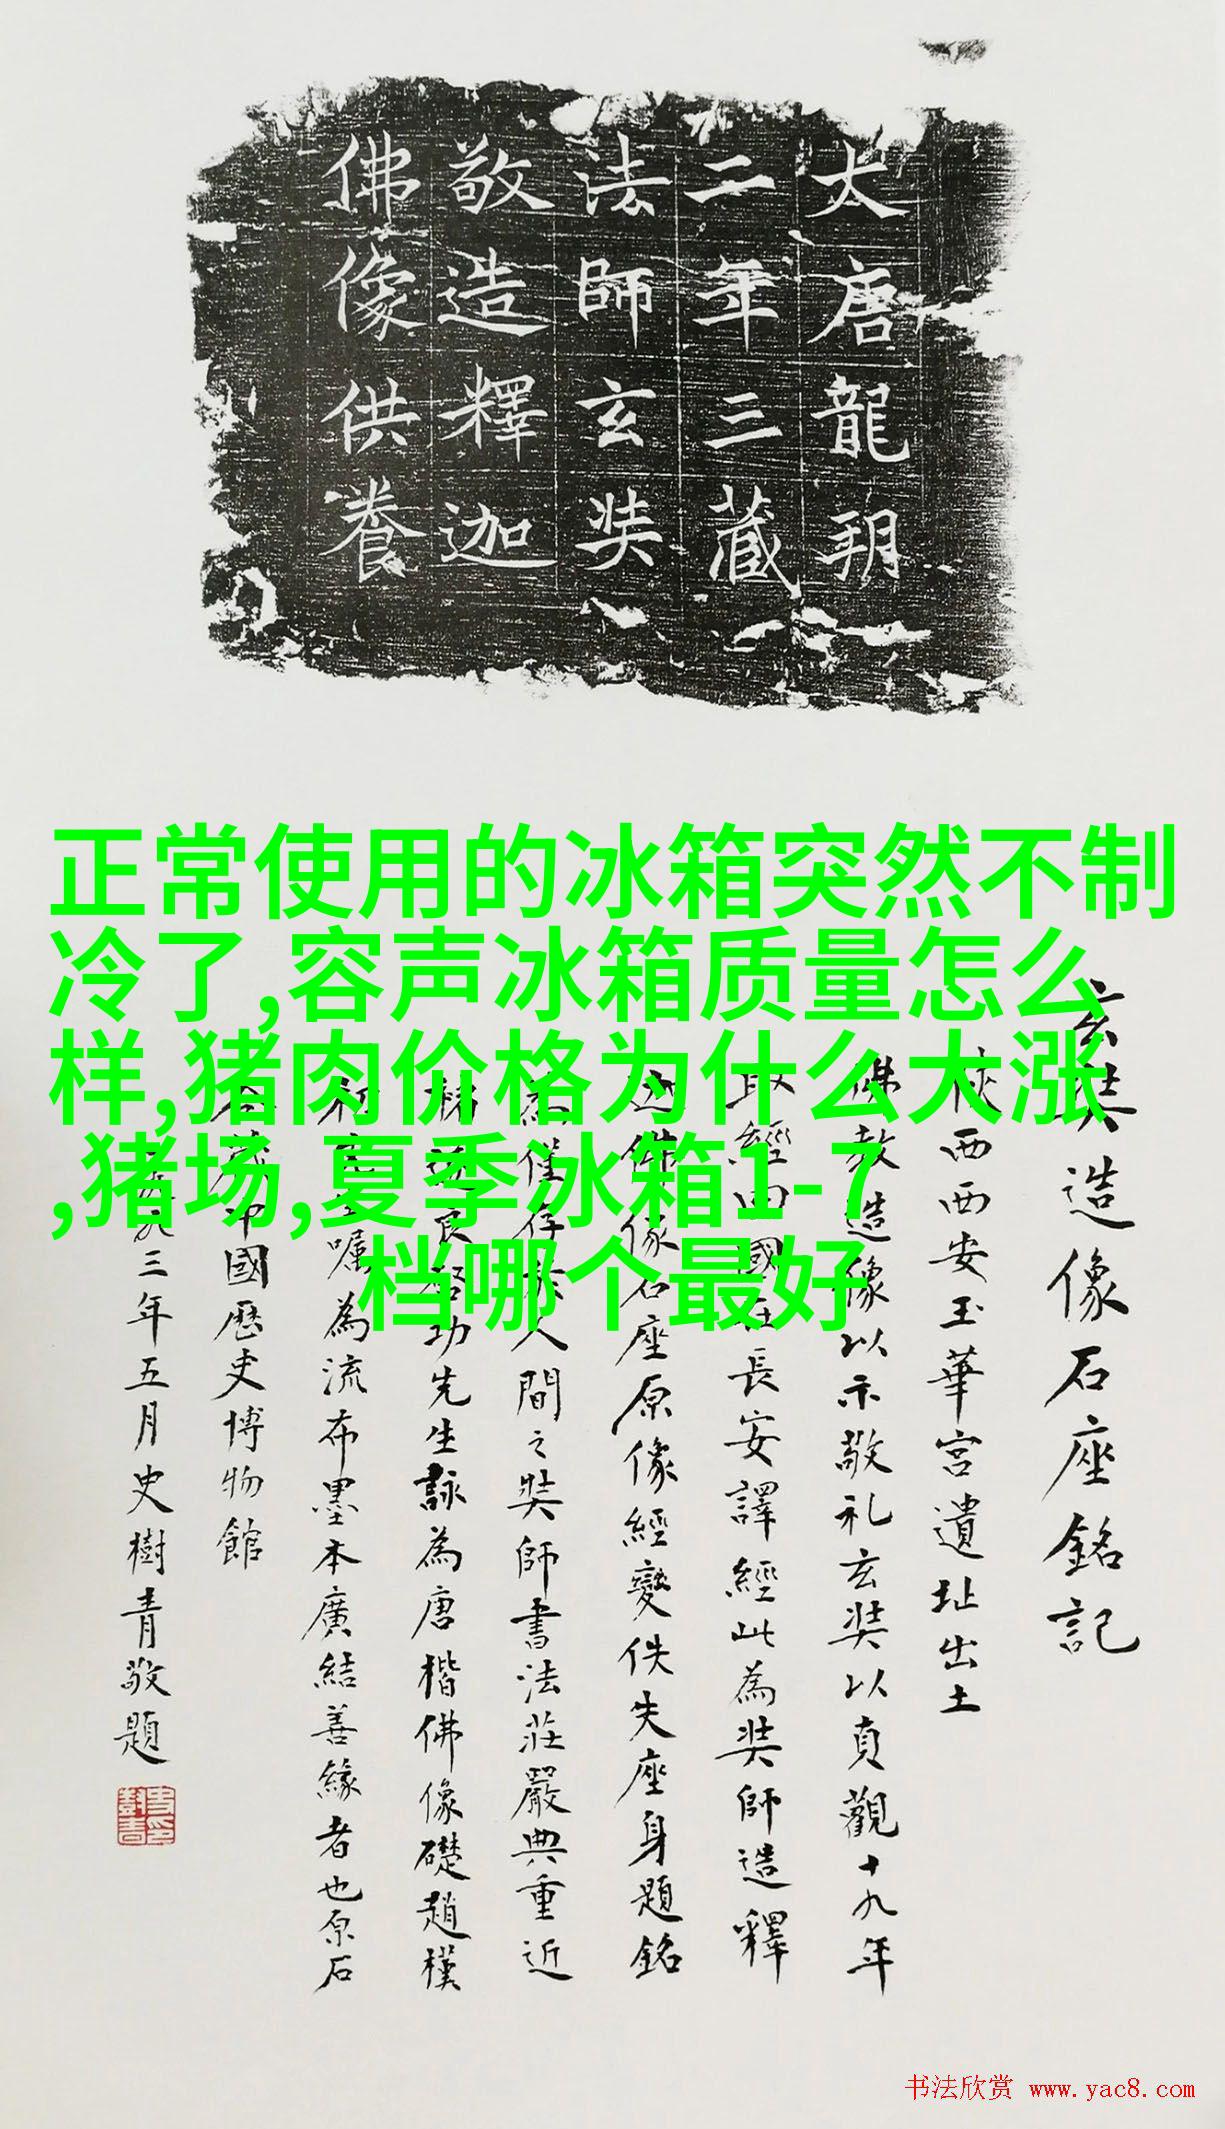 太唐龍朔
二年三藏
法師玄奘
敬造釋迦
佛像供養
正常使用的冰箱突然不制
冷了,容声冰箱质量怎么
样,猪肉价格为什么大涨
,猪场,夏季冰箱1-7
档哪个最好
玄奘造像石座銘記
陝西西安玉華宮遺址出土
佛教造像以示敬礼玄奘以貞觀十九年
取經回國在長安譯經此為奘師造釋
迦佛像石座原像經變佚失座身題銘
為僅存於人間之奘師書法莊嚴典重近
褚遂良啓功先生詠為唐楷佛像礎趙樸
初先生囑為流布墨本廣結善緣者也原石
今藏中國歷史博物館
一九九三年五月史樹青敬題
书法欣赏 www.yac8.com